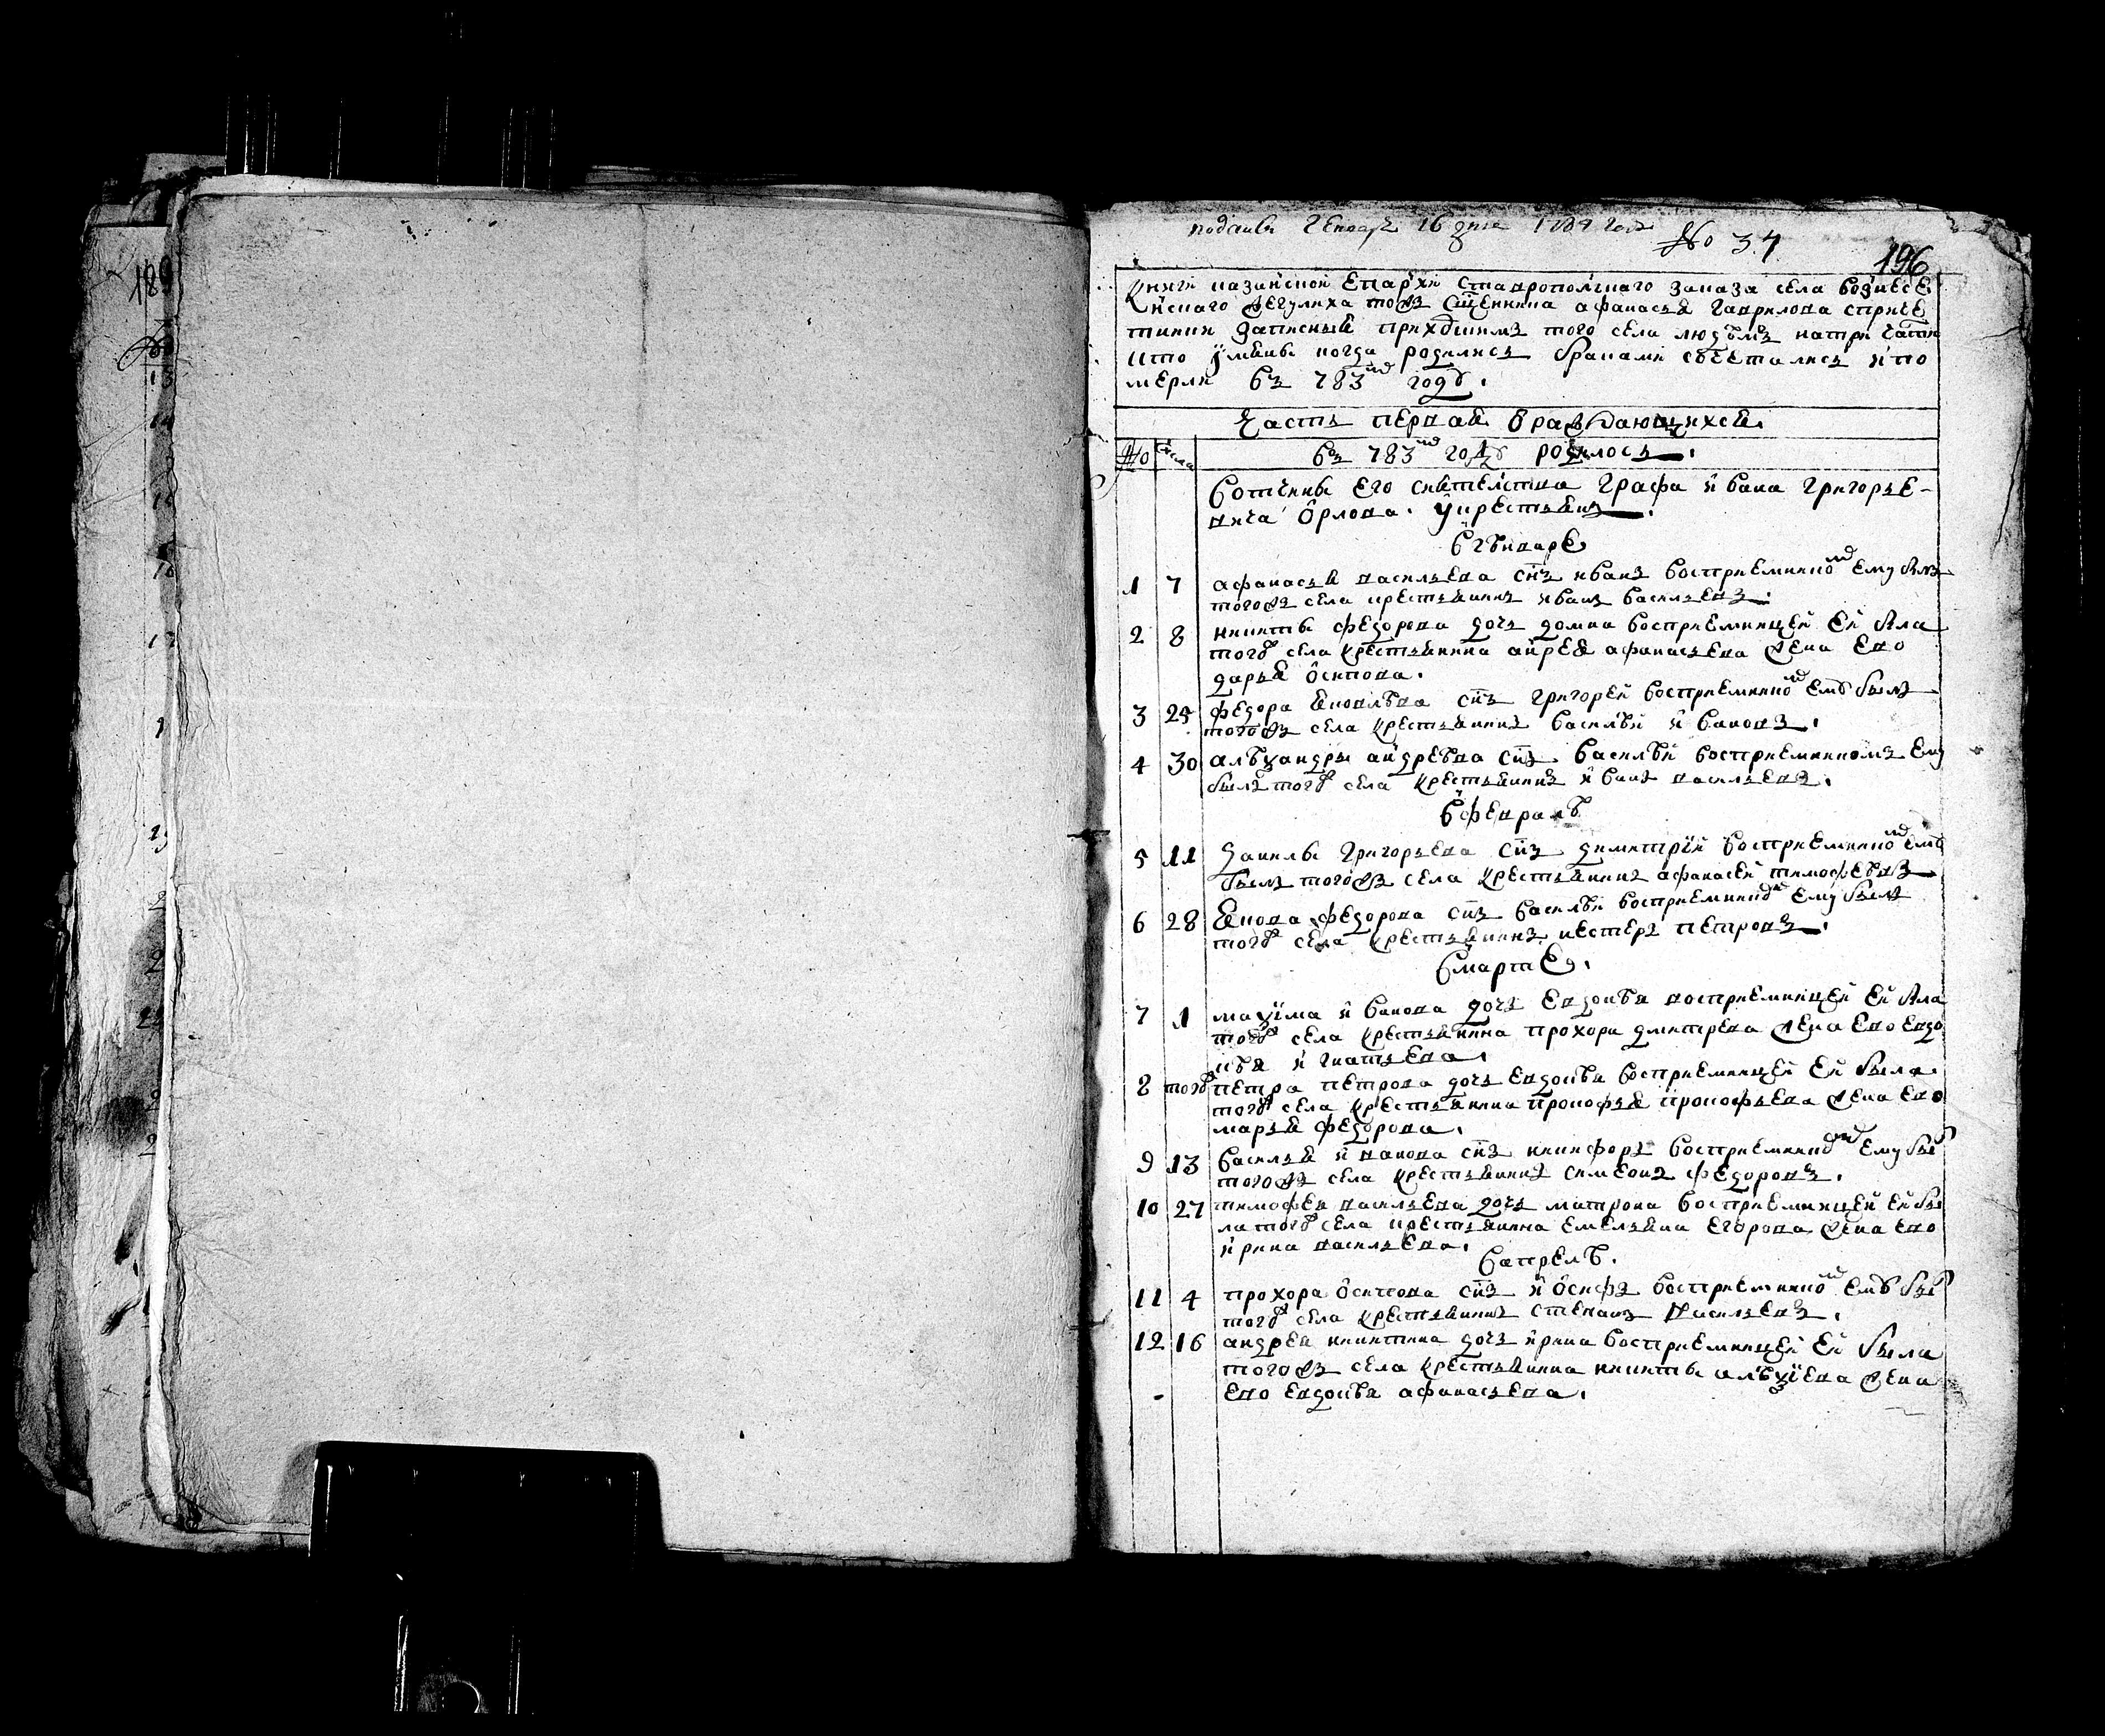 189
13
14
15
16
17
поданъ генваря 16 дня 1784 года № 34
196
Книги казанской епархїи ставрополского заказа села вознесе
нского жегулиха тожъ сщенника афанасья гаврилова с приче
тники записныя приходскимъ того села людѣмъ на три части
кто имянъ когда родились браками сочетались и по
мерли въ 783мъ годѣ.
Часть первая о раждающихся.
№ числа
въ 783мъ годѣ родилось.
вотчины его сиятелства графа ивана григорье-
вича орлова. у крестьянъ.
в гѣнваре
1 7 афанасья васильева снъ иванъ восприемникомъ ему былъ
тогожъ села крестьянинъ иванъ васильевъ.
2 8 никиты федорова дочь домна восприемницей ей была
тогож села крестьянина андрея афанасьева жена ево
дарья осипова.
3 25 федора яковлѣва снъ григорей восприемникомъ емȣ былъ
тогожъ села крестьянинъ василѣй ивановъ.
4 30 алѣѯандры андрѣева снъ василѣй восприемникомъ ему
былъ тогож села крестьянинъ иванъ васильевъ.
в февралѣ
5 11 данилы григорьева снъ димитрїй восприемникомъ емȣ
былъ тогожъ села крестьянинъ афанасей тимофѣевъ
6 28 якова федорова снъ василѣй восприемникомъ ему былъ
тогож села крестьянинъ нестеръ петровъ.
в марте.
7 1 маѯїма иванова дочь евдокѣя восприемницей ей была
тогож села крестьянина прохора дмитрева жена ево евдо
кѣя игнатьева.
8 тогож петра петрова дочь евдокѣя восприемницей ей была
тогож села крестьянина прокофья прокофьева жена ево
марья федорова.
9 13 василья иванова снъ никифоръ восприемникомъ ему был
тогожъ села крестьянинъ симеонъ федоровъ.
10 27 тимофея васильева дочь матрона восприемницей ей бы
ла тогож села крестьянина емельяна егорова жена ево
ирина васильева.
в апрелѣ.
11 4 прохора осипова снъ иосифъ восприемникомъ емȣ был
тогож села крестьянинъ степанъ васильевъ.
12 16 андрея никитина дочь ирина восприемницей ей была
тогожъ села крестьянина никиты алѣѯїева жена
ево евдокѣя афанасьева.